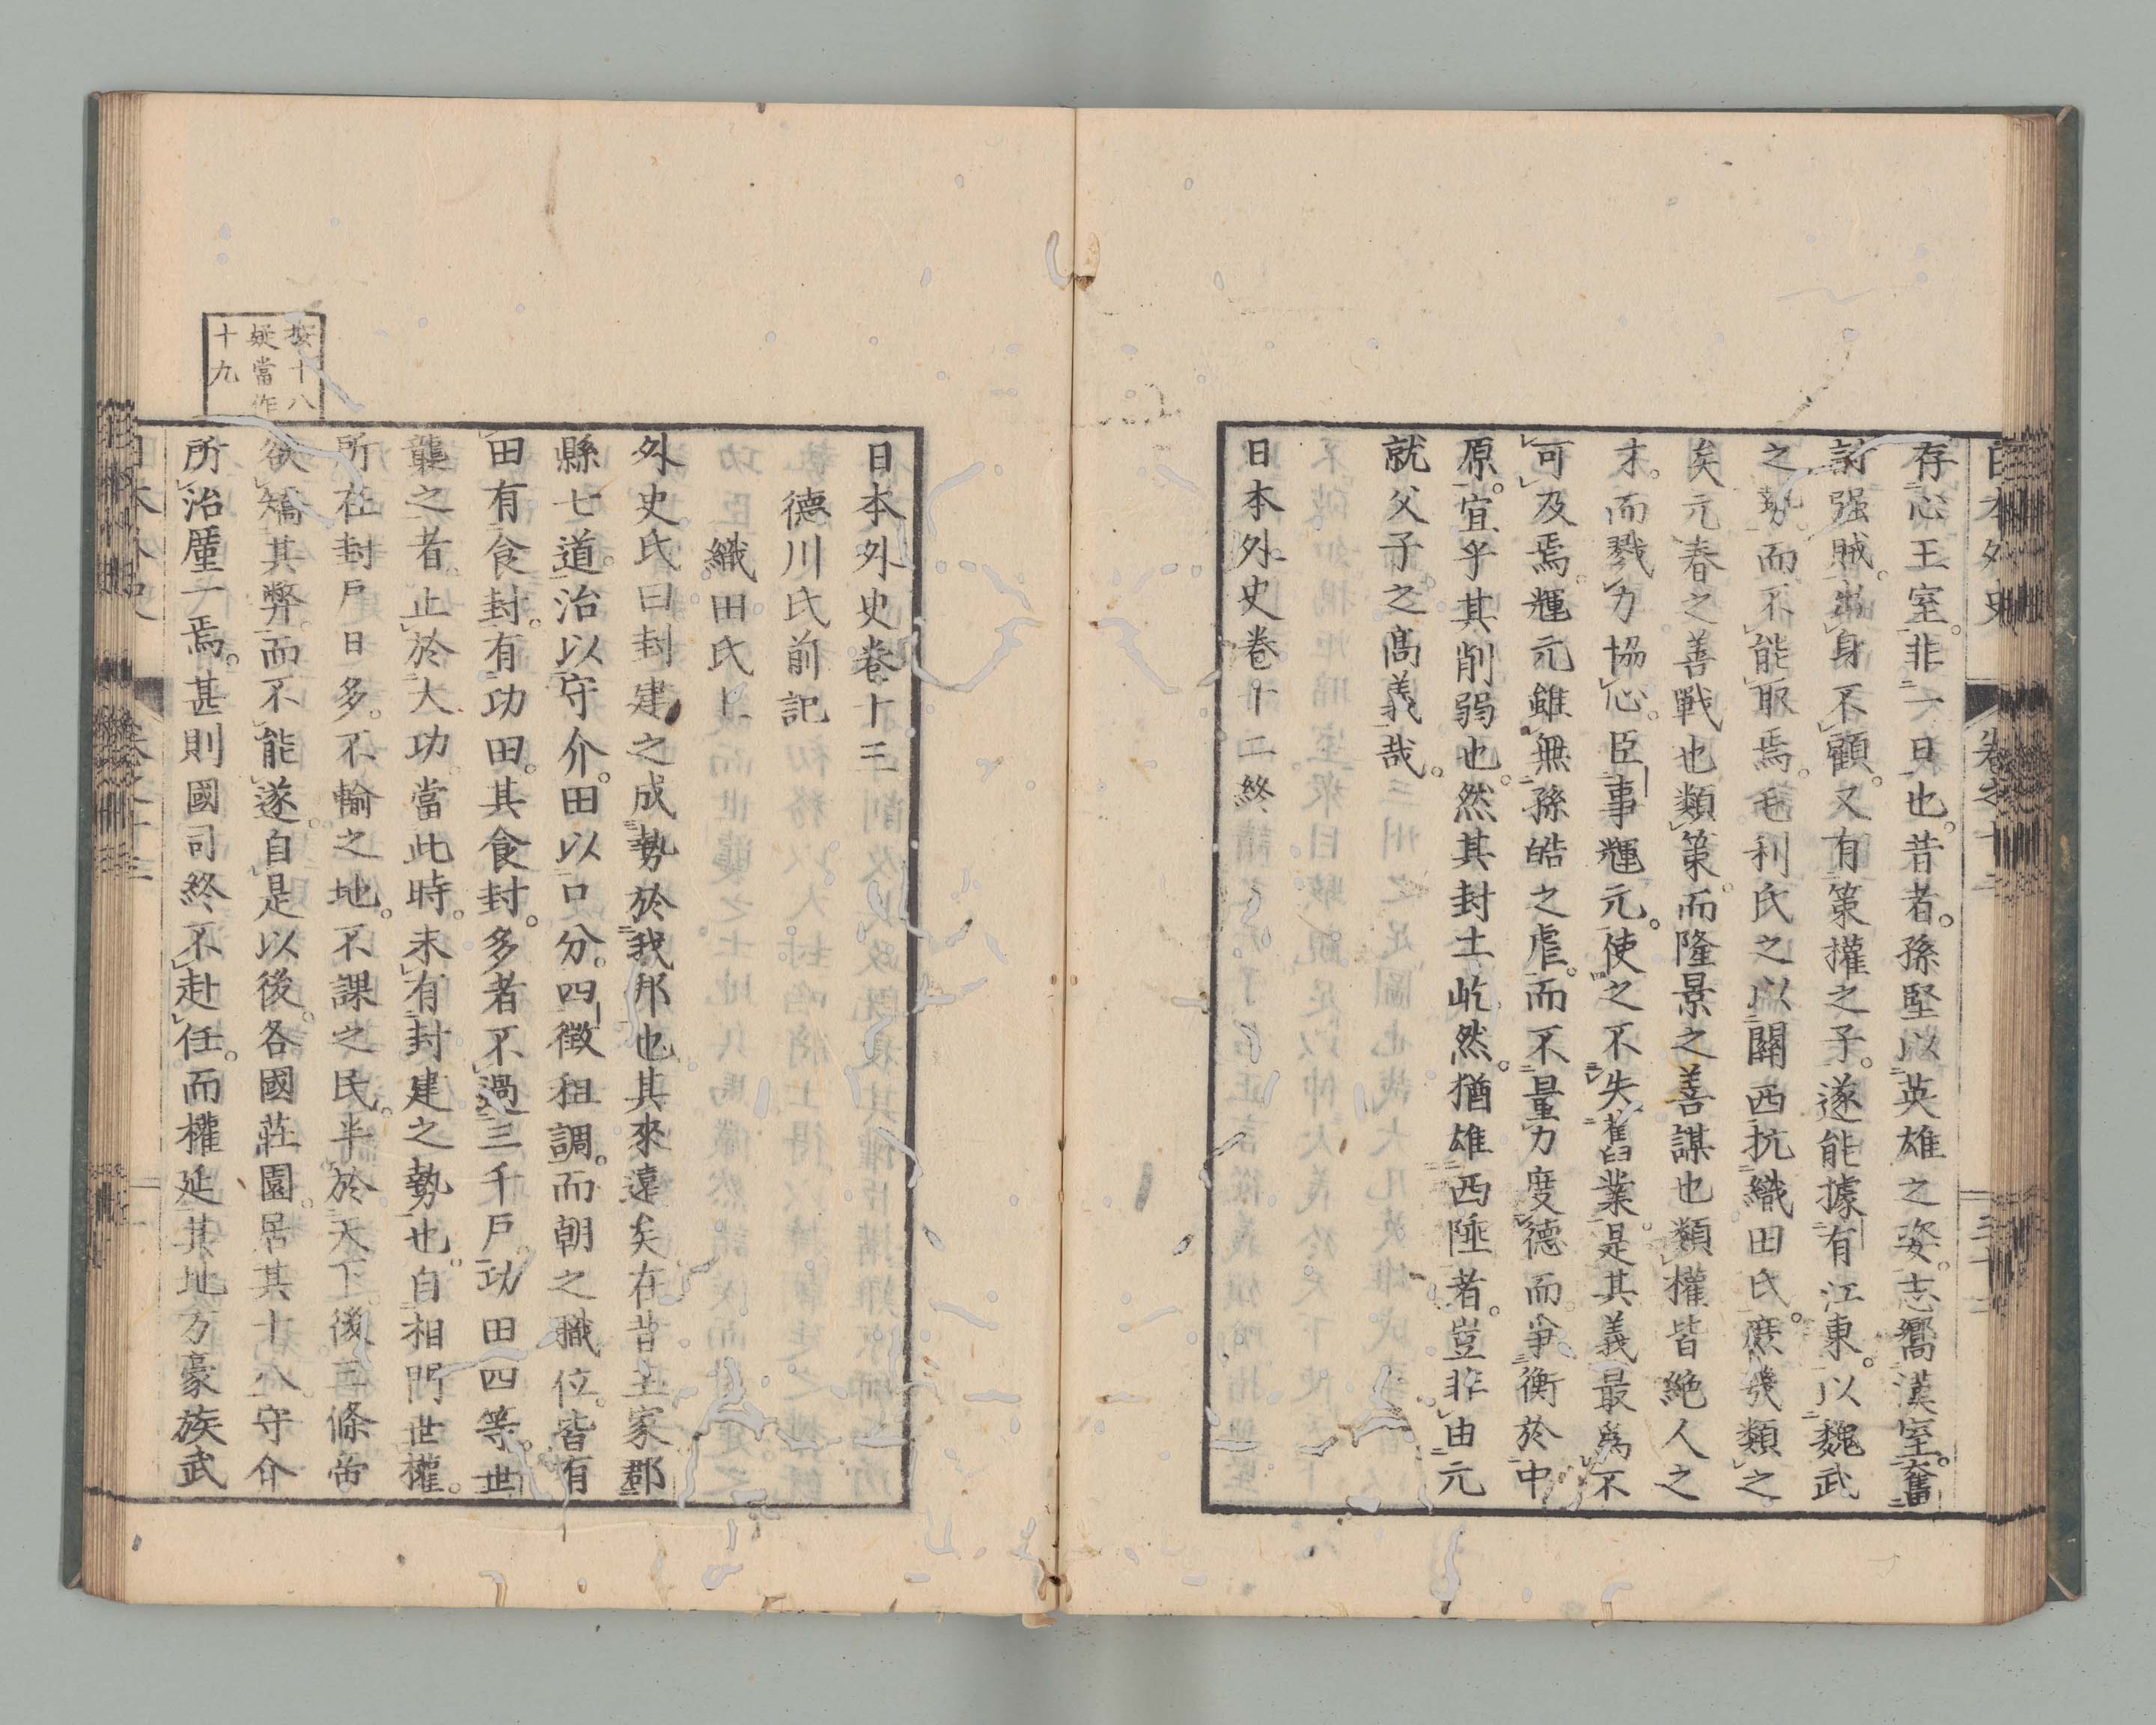 日本外史 卷之十二 三十二
存心王室。非一日也。昔者。孫堅以英雄之姿。志嚮漢室。奮
討强賊。出身不顧。又有策權之子。遂能據有江東。以魏武
之勢。而不能取焉。毛利氏之以關西抗織田氏。庶幾類之
矣元春之善戰也類策。而隆景之善謀也類權皆絶人之
才。而戮力協心。臣事輝元。使之不失舊業。是其義最爲不
可及焉。輝元雖無孫皓之虐。而不量力度德而爭衡於中
原。宜乎其削弱也。然其封土屹然。猶雄西陲者。豈非由元
就父子之高義哉。
日本外史卷十二終
日本外史卷十三
德川氏前記
織田氏上
外史氏曰封建之成勢於我邦也其來遠矣在昔王家郡
縣七道。治以守介。田以口分。四徵租調。而朝之職位。皆有
田有食封。有功田。其食封。多者不過三千戶。功田四等。世
襲之者。止於大功。當此時。未有封建之勢也。自相門世權。
所在封戶日多。不輸之地。不課之民。半於天下。後三條帝
欲矯其弊。而不能遂。自是以後。各國莊園。居其十八。守介
所治厪一焉。甚則國司終不赴任。而權延其地方豪族武
按十八
疑當作
十九
日本外史 卷之十三 一